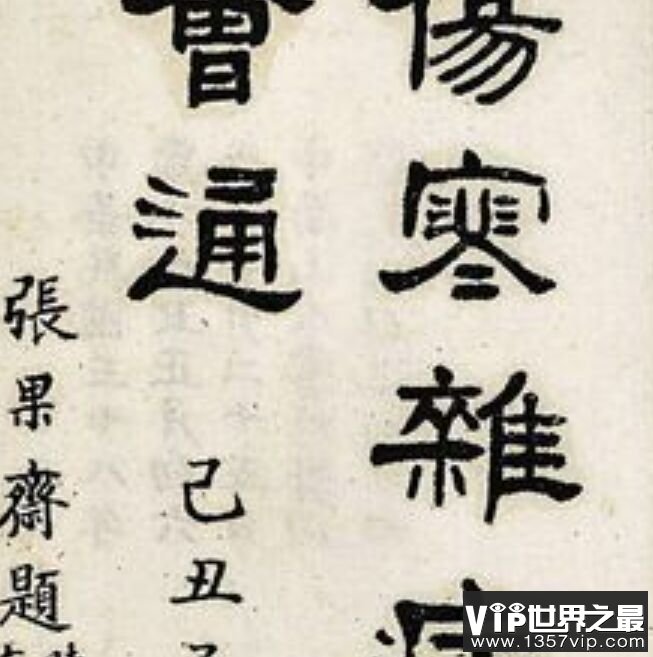 傷寒雜
會通
己丑
張果齋題
VIP世界之最
www.1357vip.com